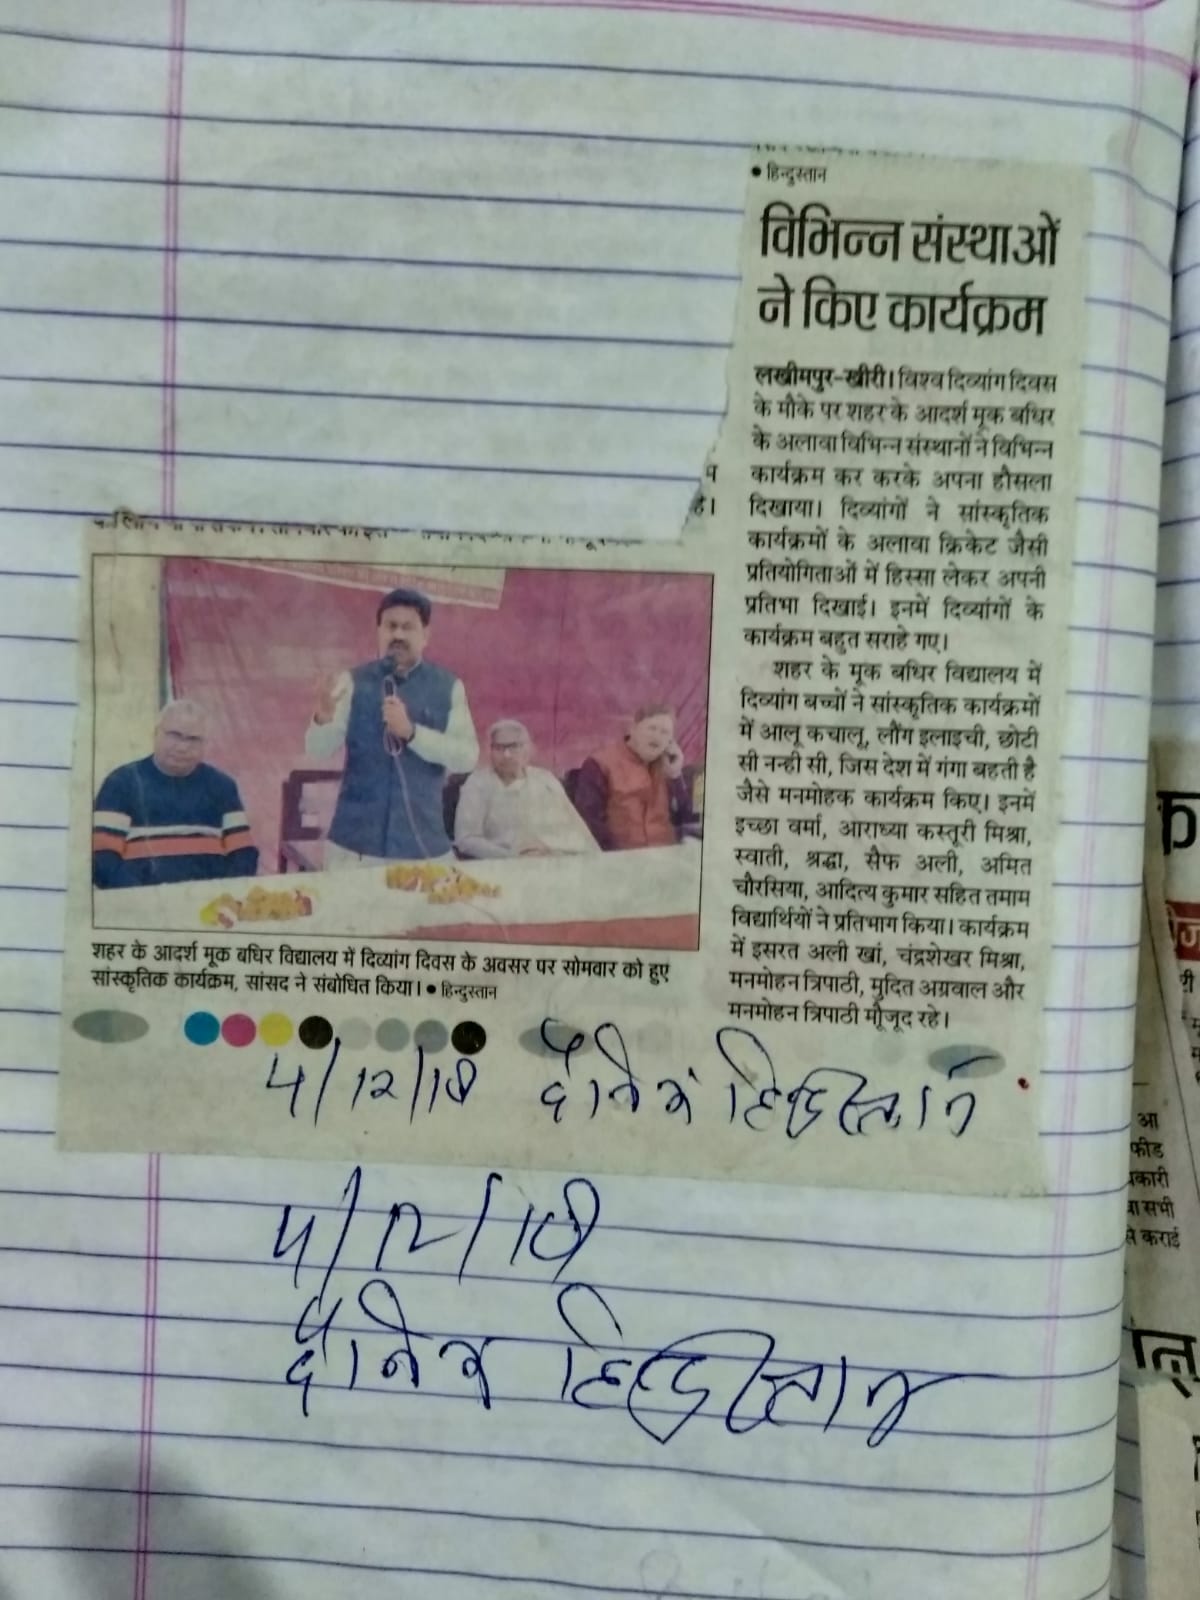 • हिन्दुस्तान
विभिन्न संस्थाओं
ने किए कार्यक्रम
लखीमपुर-खीरी। विश्व दिव्यांग दिवस
के मौके पर शहर के आदर्श मूक बधिर
के अलावा विभिन्न संस्थानों ने विभिन्न
कार्यक्रम कर करके अपना हौसला
दिखाया। दिव्यांगों ने सांस्कृतिक
कार्यक्रमों के अलावा क्रिकेट जैसी
प्रतियोगिताओं में हिस्सा लेकर अपनी
प्रतिभा दिखाई। इनमें दिव्यांगों के
कार्यक्रम बहुत सराहे गए।
शहर के मूक बधिर विद्यालय में
दिव्यांग बच्चों ने सांस्कृतिक कार्यक्रमों
में आलू कचालू, लौंग इलाइची, छोटी
सी नन्ही सी, जिस देश में गंगा बहती है
जैसे मनमोहक कार्यक्रम किए। इनमें
इच्छा वर्मा, आराध्या कस्तूरी मिश्रा,
स्वाती, श्रद्धा, सैफ अली, अमित
चौरसिया, आदित्य कुमार सहित तमाम
विद्यार्थियों ने प्रतिभाग किया। कार्यक्रम
में इसरत अली खां, चंद्रशेखर मिश्रा,
मनमोहन त्रिपाठी, मुदित अग्रवाल और
मनमोहन त्रिपाठी मौजूद रहे।
है।
शहर के आदर्श मूक बधिर विद्यालय में दिव्यांग दिवस के अवसर पर सोमवार को हुए
सांस्कृतिक कार्यक्रम, सांसद ने संबोधित किया। • हिन्दुस्तान
4/12/18 दैनिक हिन्दुस्तान
4/12/18
दैनिक हिन्दुस्तान
आ
फीड
सभी
कराई